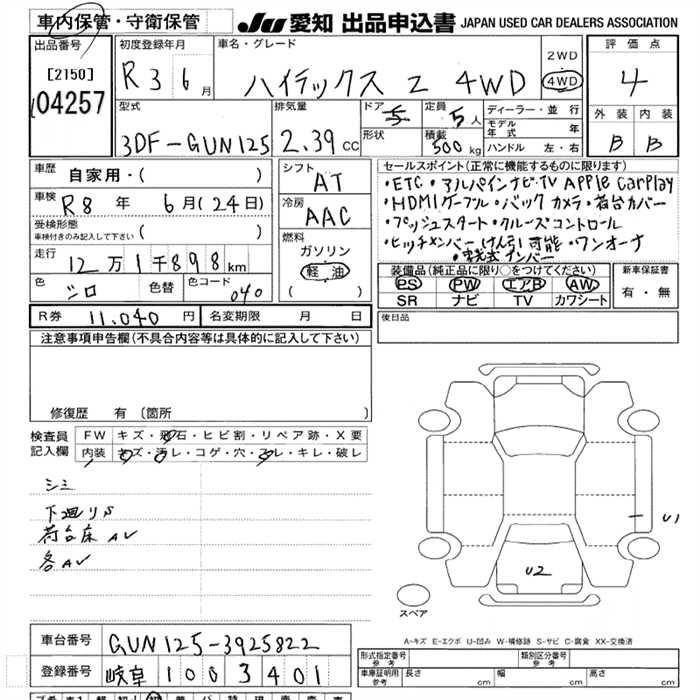 車内保管・守衛保管
JU 愛知 出品申込書 JAPAN USED CAR DEALERS ASSOCIATION
出品番号
[2150]
04257
初度登録年月
R3 6月
車名・グレード
ハイラックス Z 4WD
2WD
4WD
評価点
4
型式
3DF-GUN125
排気量
2.39 cc
ドア
5
形状
定員
5人
積載
500 kg
ディーラー・並行
モデル年式 年
ハンドル 左・右
外装 内装
B B
車歴
自家用・( )
車検
R8 年 6月(24日)
受検形態
車検付きのみ記入して下さい ( )
走行
12万1千898km
色
シロ
色替
色コード
040
シフト
AT
冷房
AAC
燃料
ガソリン
軽油
( )
セールスポイント(正常に機能するものに限ります)
・ETC・アルパインナビ・TV Apple CarPlay
・HDMIケーブル・バックカメラ・荷台カバー
・プッシュスタート・クルーズコントロール
・ヒッチメンバー けん引可能・ワンオーナ
装備品(純正品に限り○をつけてください)
PS PW エアB AW
SR ナビ TV カワシート
新車保証書
有・無
R券 11,040 円
名変期限 月 日
後日品
注意事項申告欄(不具合内容等は具体的に記入して下さい)
修復歴 有(箇所 )
検査員記入欄
FW キズ・飛石・ヒビ割・リペア跡・X要
内装 キズ・汚レ・コゲ・穴・スレ・キレ・破レ
シミ
下廻りS
荷台床AU
各AU
U1
U2
スペア
A-キズ E-エクボ U-凹み W-補修跡 S-サビ C-腐食 XX-交換済
車台番号 GUN125-3925822
登録番号 岐阜 100 3401
形式指定番号 参考
類別区分番号 参考
車庫証明用 参考 長さ cm 幅 cm 高さ cm